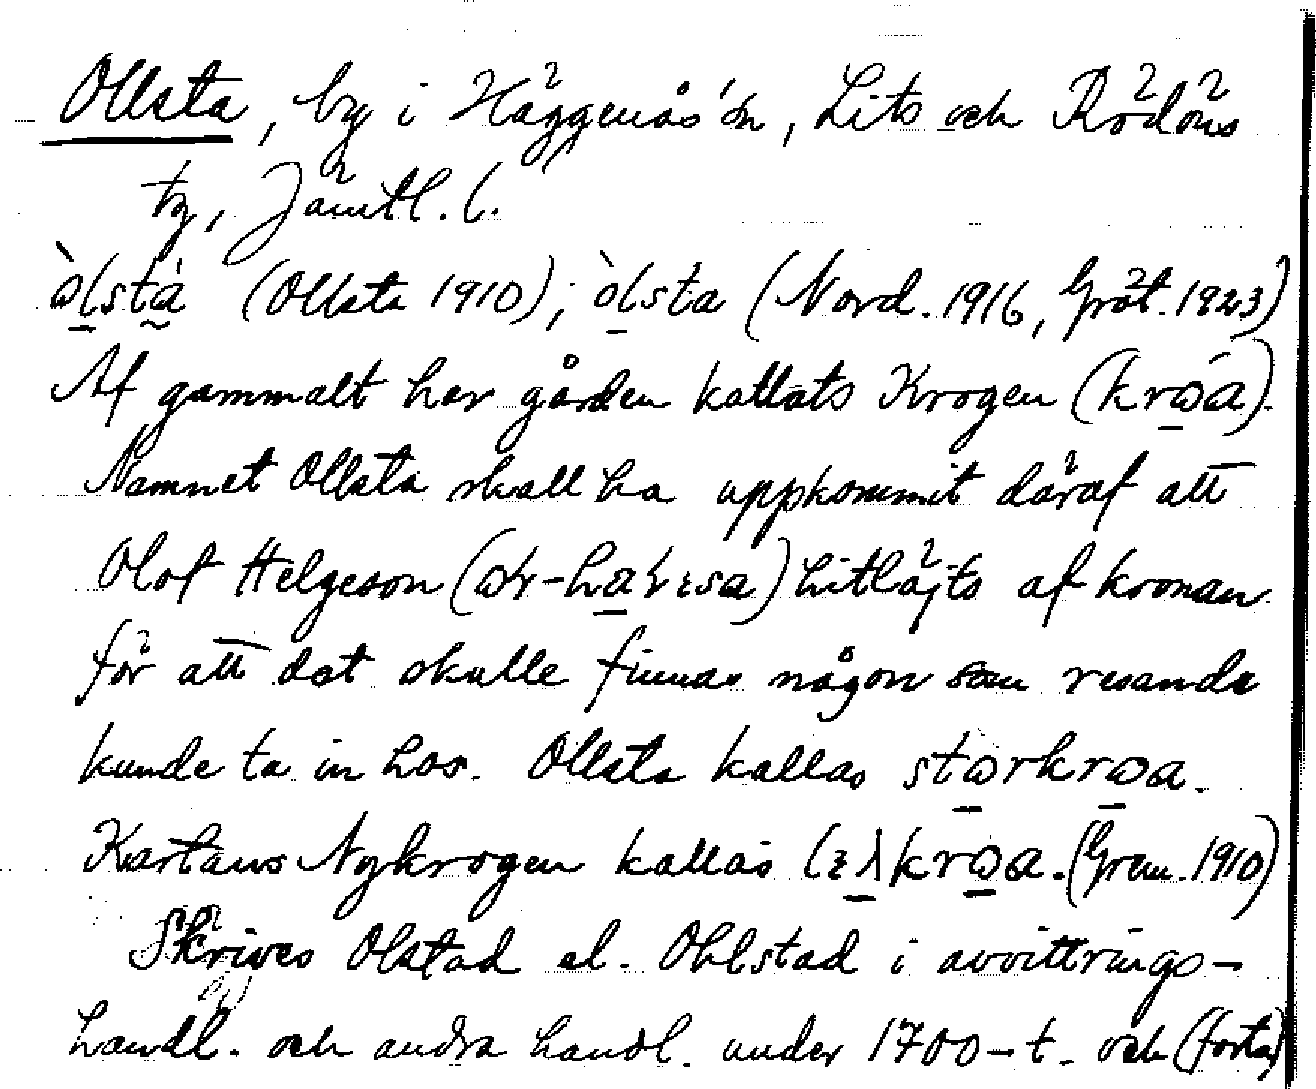 Ollsta, by i Häggenås' sn, Lits och Rödöns
tg, Jämtl. l.
òlstà (Ollsta 1910); òlsta (Nord. 1916, Gröt. 1923)
Af gammalt har gården kallats Krogen (krɷa).
Namnet Ollsta skall ha uppkommit däraf att
Olof Helgeson hitläjts af kronan
för att det skulle finnas någon som resande
kunde ta in hos. Ollsta kallas stɷrkrɷa.
Kartans Nykrogen kallas krɷa. (Gren. 1910)
Skrives Olstad el. Ohlstad i avvittrings-
handl. och andra handl. under 1700-t. och (forts)